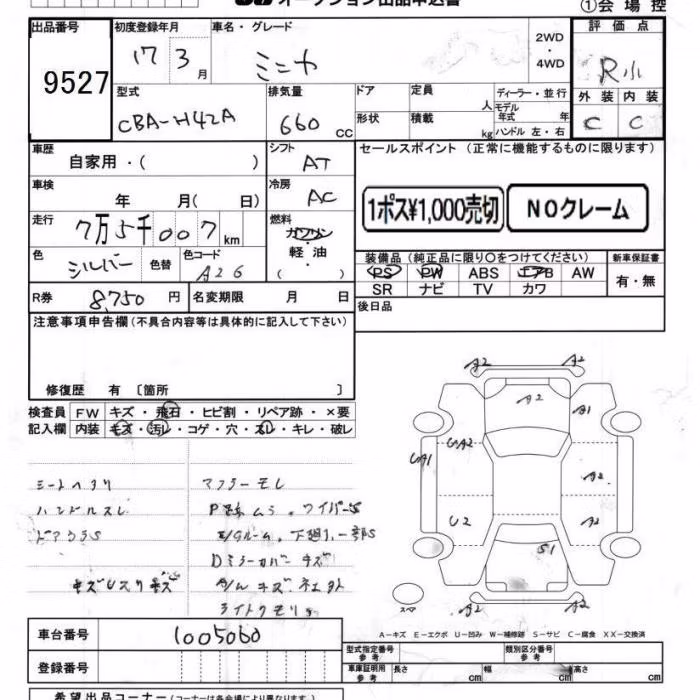 オークション出品申込書
①会場控
出品番号 初度登録年月 車名・グレード 2WD ・ 4WD 評価点
9527 17 3月 ミニカ R小
外装 内装
C C
型式 排気量 ドア 定員 人 ディーラー・並行
CBA-H42A 660 CC 形状 積載 kg モデル年式 年
ハンドル 左・右
車歴 シフト セールスポイント (正常に機能するものに限ります)
自家用・( ) AT
車検 年 月( 日) 冷房 AC
1ポス¥1,000売切 NOクレーム
走行 7万5千007km 燃料 ガソリン・軽油 ( )
色 シルバー 色替 色コード A26
装備品(純正品に限り○をつけてください) 新車保証書
PS PW ABS エアB AW 有・無
SR ナビ TV カワ
R券 8,750円 名変期限 月 日 後日品
注意事項申告欄(不具合内容等は具体的に記入して下さい)
修復歴 有 〔箇所 〕
検査員 FW キズ・飛石・ヒビ割・リペア跡・×要
記入欄 内装 キズ・汚レ・コゲ・穴・スレ・キレ・破レ
シートヘタリ
ハンドルスレ
ドアウラS
マフラーモレ
Dミラーカバーキズ
A2 A2
A2
A1
UA2
UA1
A2
U2
A2
S1
A2 A2
スペア
A-キズ E-エクボ U-凹み W-補修跡 S-サビ C-腐食 XX-交換済
車台番号 1005060
型式指定番号 参考 類別区分番号 参考
登録番号
車庫証明用 参考 長さ 幅 高さ
希望出品コーナー(コーナーは各会場により異なります。)